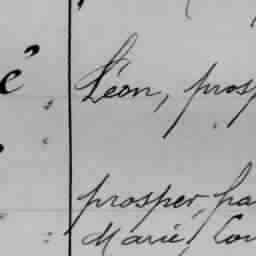 é
Léon, prosp
prosper, pa
Marie, Cou